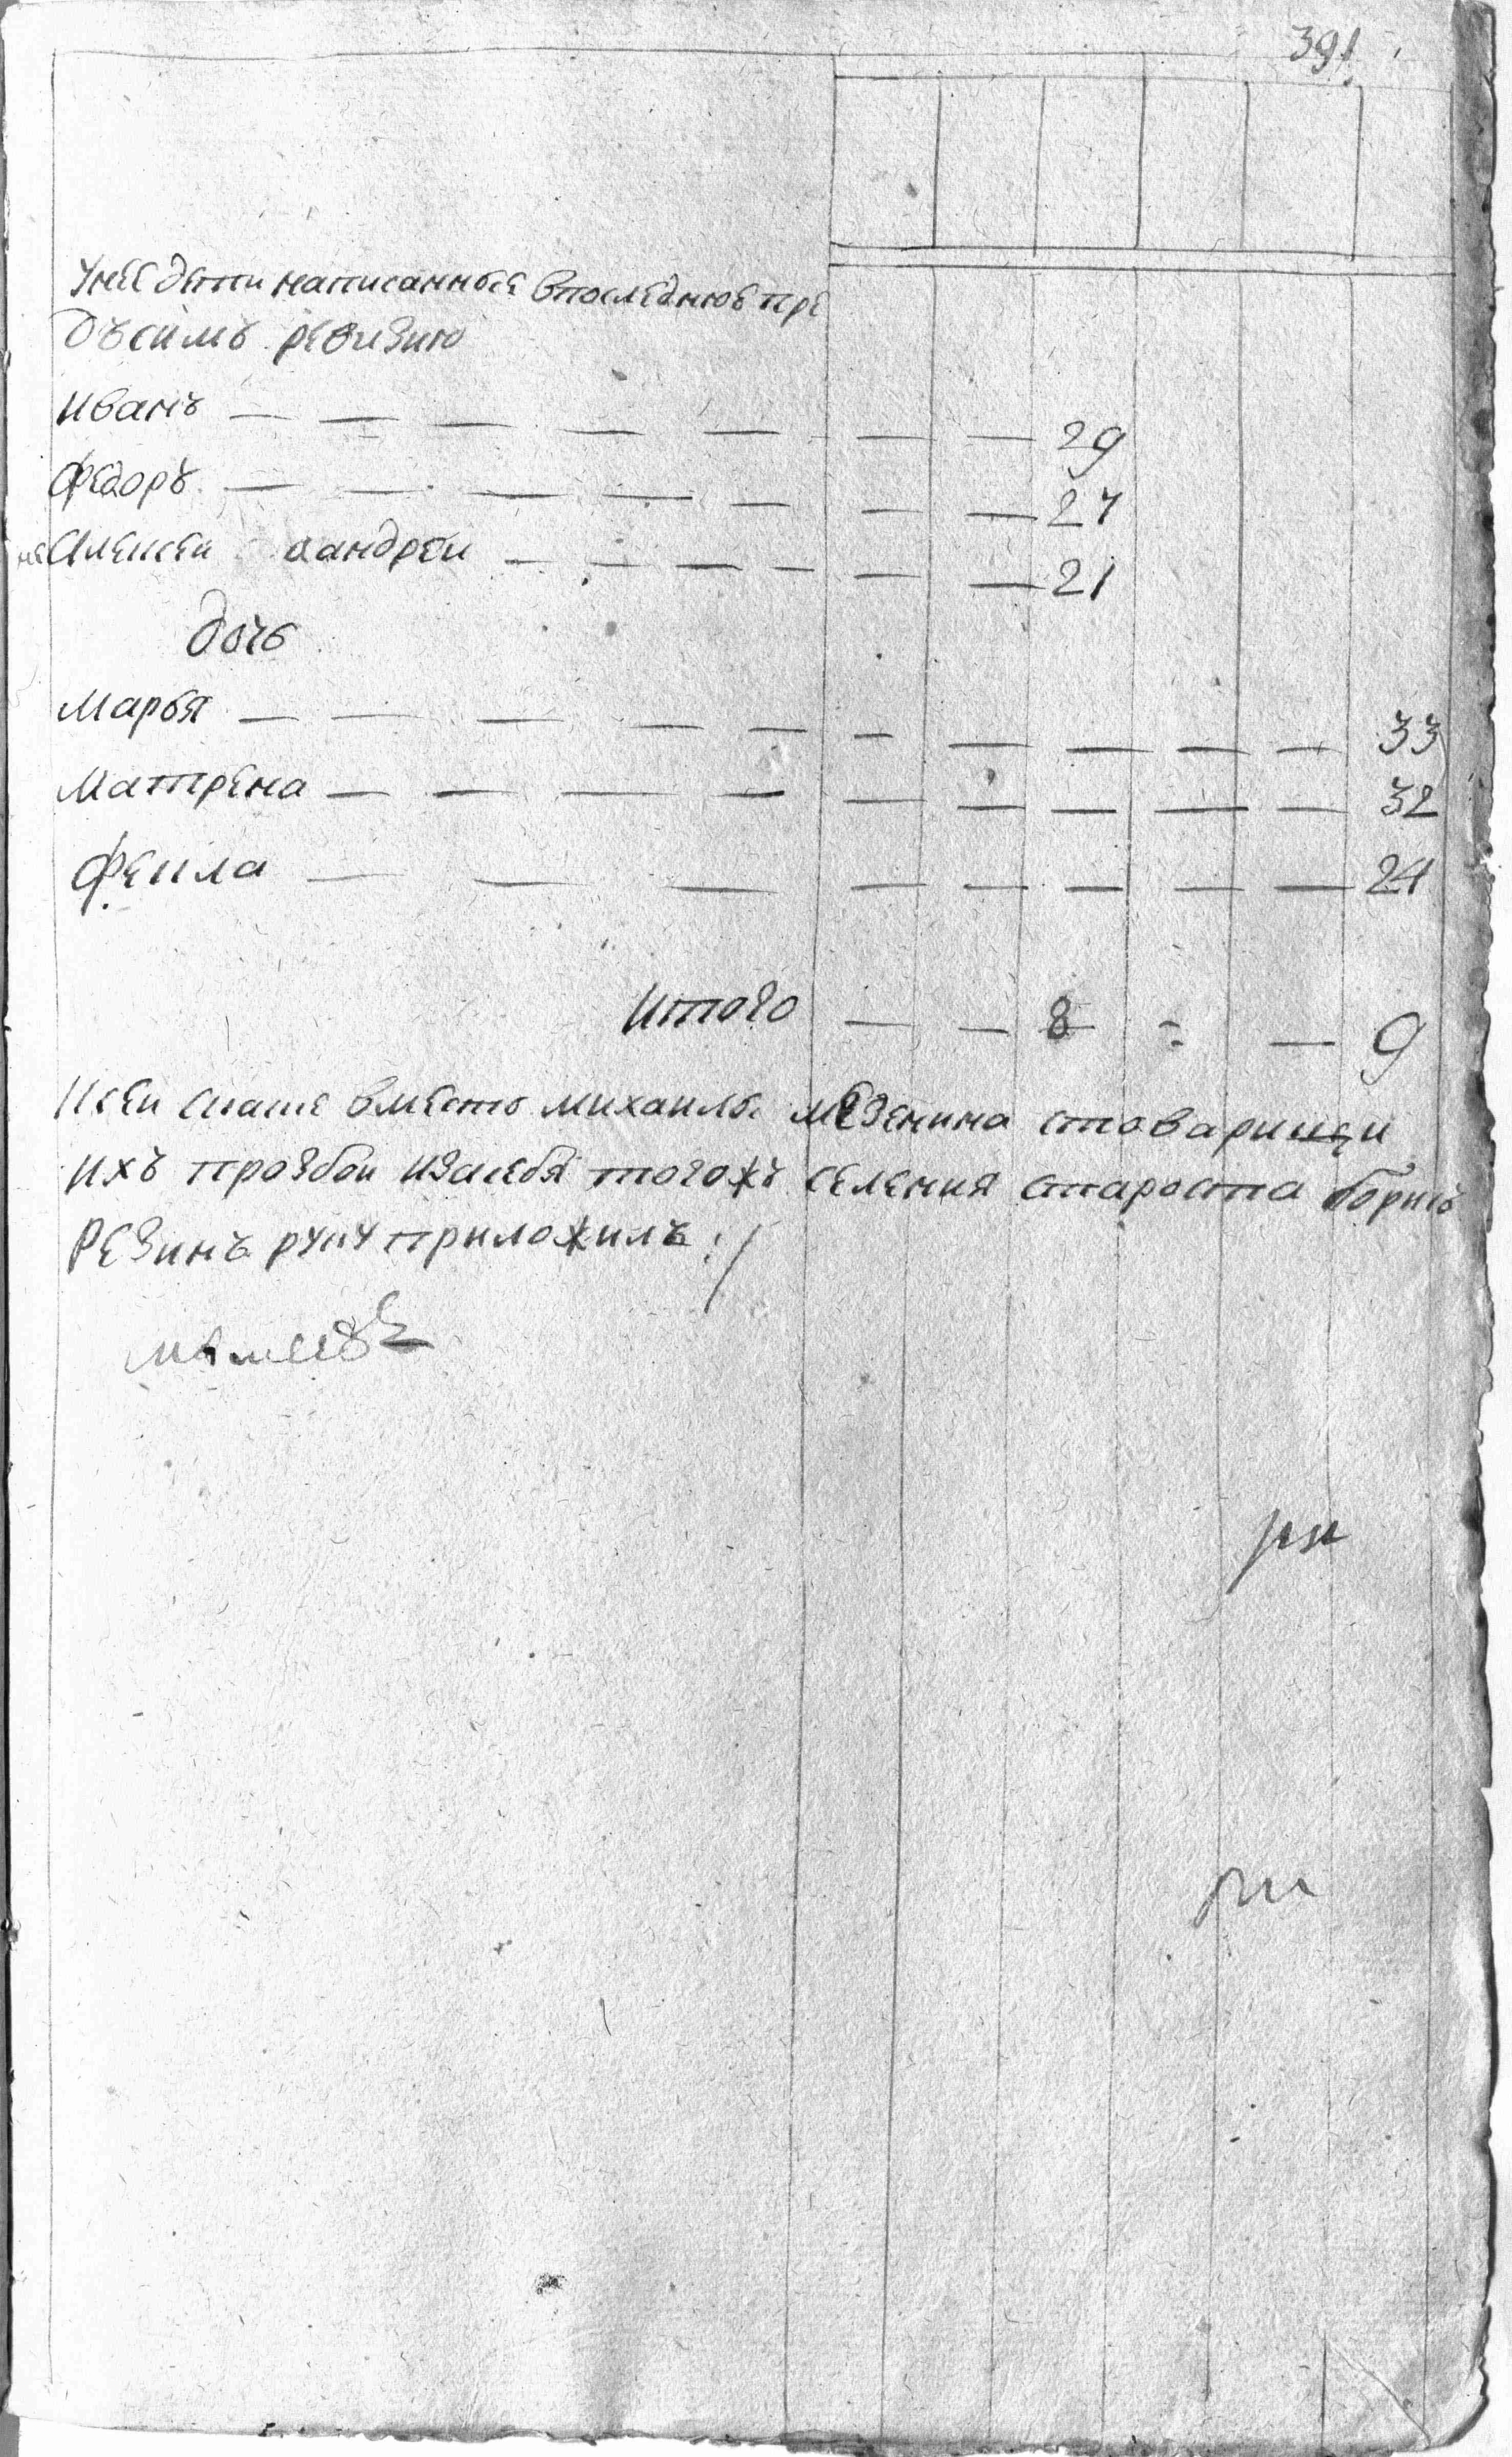 391
Унее дети написанные впоследнюю пре
дъсимъ ревизию
Иванъ — — — — — — — 29
Федоръ — — — — — — — 27
Алексеи аандреи — — — — — — 21
дочь
Марья — — — — — — — — — — 33
Матрена — — — — — — — — — 32
Фекла — — — — — — — — 24
Итого — — 8 — 9
Ксеи скаске вместо михаилы мезенина стоварищи
ихъ прозбои изасебя тогожъ селения староста борисъ
Резинъ руку приложилъ